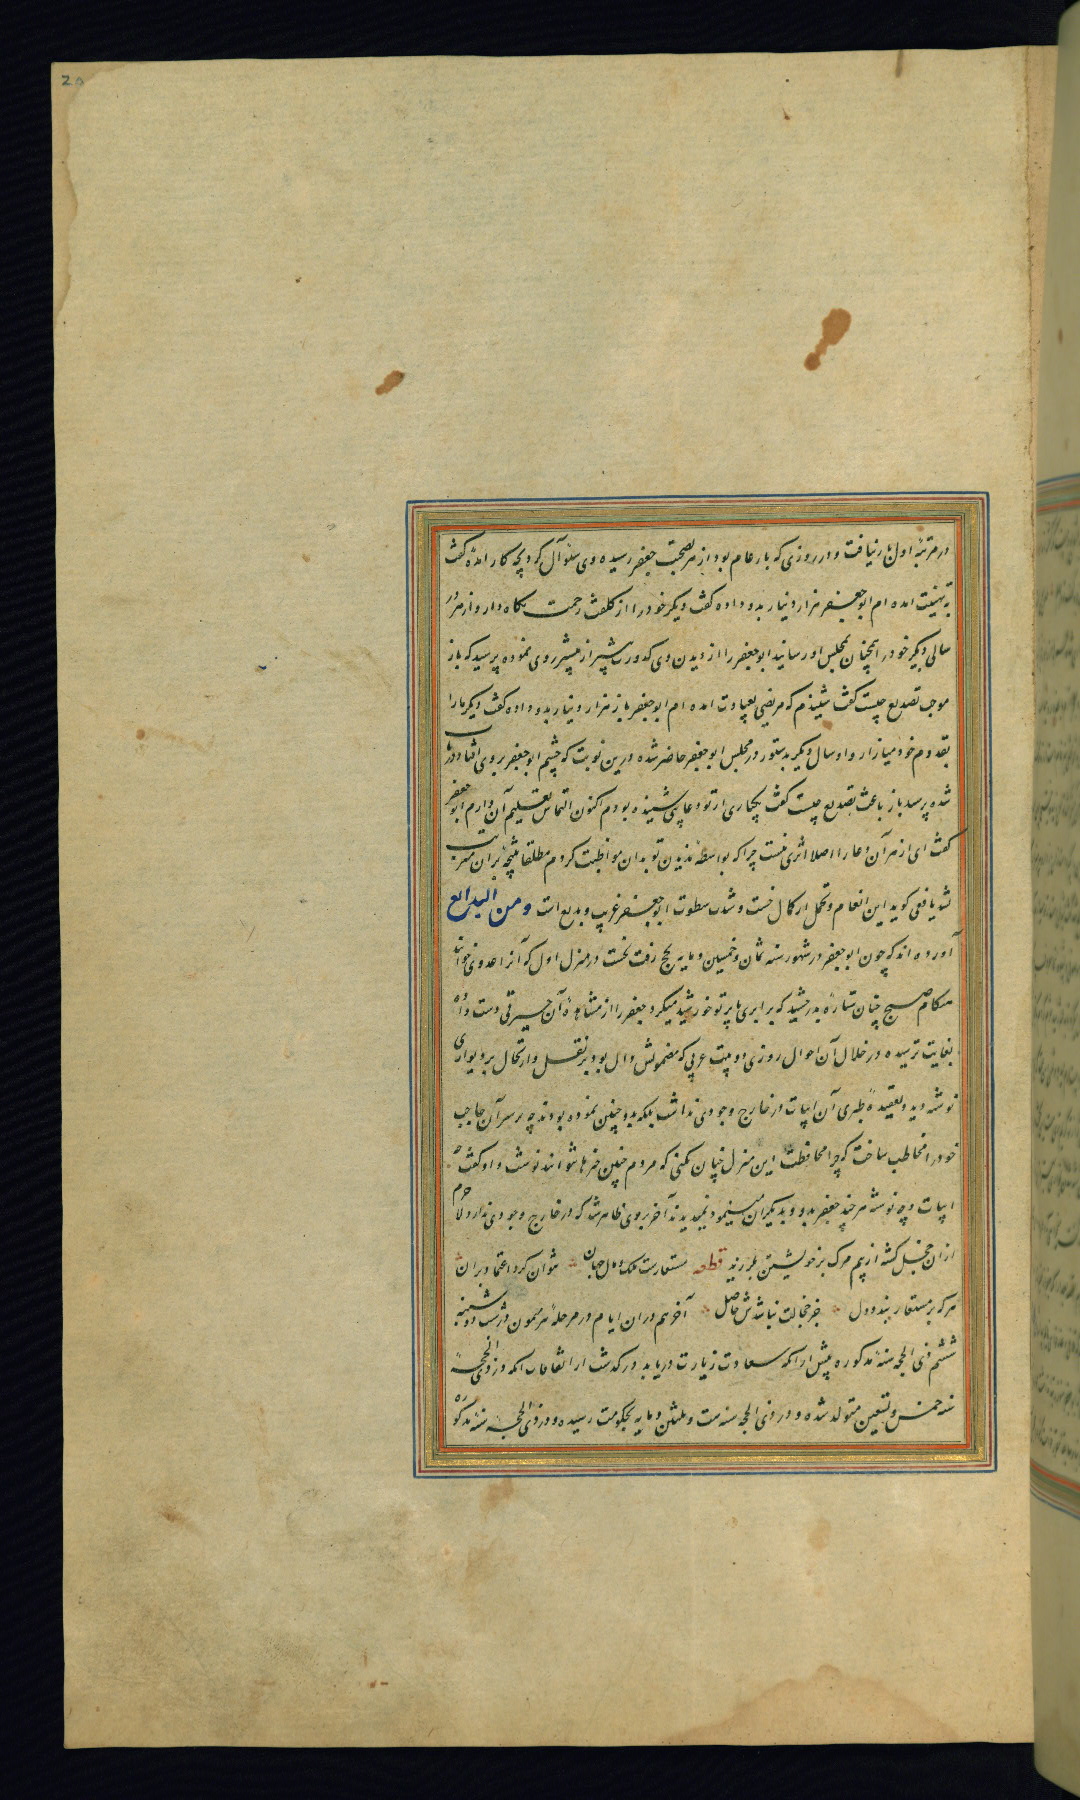 در مرتبهٔ اول بار نیافت و در روزی که بار عام بود از مر بصحبت جعفر رسیده وی سئوآل کرد بچه کار امدهٔ گفت
بتهنیت امده ام ابو جعفر هزار دینار بدو داده گفت دیگر خود را از کلفت زحمت نگاه دار و از مرور
سالی دیگر خود را همچنان بمجلس او رسانید ابو جعفر را از دیدن وی کدورت بیشتر از پیشتر روی نموده پرسید که باز
موجب تصدیع چیست گفت شنیدم که مریضی بعیادت امده ام ابو جعفر باز هزار دینار بدو داده گفت دیگر ما را
بقدوم خود میازار و او سال دیگر بدستور در مجلس ابو جعفر حاضر شده درین نوبت که چشم ابو جعفر بر وی افتاد در تاب
شده پرسید باز باعث تصدیع چیست گفت یکباری از تو دعایی شنیده بودم اکنون التماس تعلیم آن دارم ابو جعفر
گفت ای از مر آن دعا را اصلا اثری نیست چرا که بواسطهٔ ندیدن تو بدان مواظبت کردم مطلقا نتیجهٔ بر ان مترتب
نشد یافعی کوید این انعام و تحمل از کمال خست و شدت سطوت ابو جعفر غریب و بدیع است ومن البدایع
آورده اند که چون ابو جعفر در شهور سنه ثمان و خمسین و مایه بحج رفت نخست در منزل اول که آنرا عدوی خوانند
هنکام صبح چنان ستارهٔ بدرخشید که برابری با پرتو خورشید میکرد جعفر را از مشاهدهٔ آن حیرتی دست داده
بغایت ترسیده در خلال آن احوال روزی دو بیت عربی که مضمونش دال بود بر نقل و ارتحال بر دیواری
نوشته دید و بعقیدهٔ طبری آن ابیات در خارج وجودی نداشت بلکه بدو چنین نموده بودند چه بر سر آن حاجب
خود را مخاطب ساخت که چرا محافظت این منزل چنان نکنی که مردم چنین خبرها نتوانند نوشت و او گفت چه
ابیات و چه نوشته هر چند جعفر بدو و بدیکران مینمود نمیدیدند آخر بر وی ظاهر شد که در خارج وجودی ندارد لاجرم
ازان خجل کشته از بیم مرک بر خویشتن بلرزید قطعه مستعارست ملک و مال جهان نتوان کرد اعتماد بر ان
هر که بر مستعار بندد دل جز خجالت نباشدش حاصل آخر هم دران ایام در مرحلهٔ بئر میمون در شب دوشنبه
ششم ذی الحجه سنهٔ مذکوره پیش از انکه سعادت زیارت دریابد در گذشت از اتفاقات انکه در ذی الحجهٔ
سنه خمس و تسعین متولد شده و در ذی الحجه سنه ست و ثلثین و مایه بحکومت رسیده و در ذی الحجه سنهٔ مذکوره